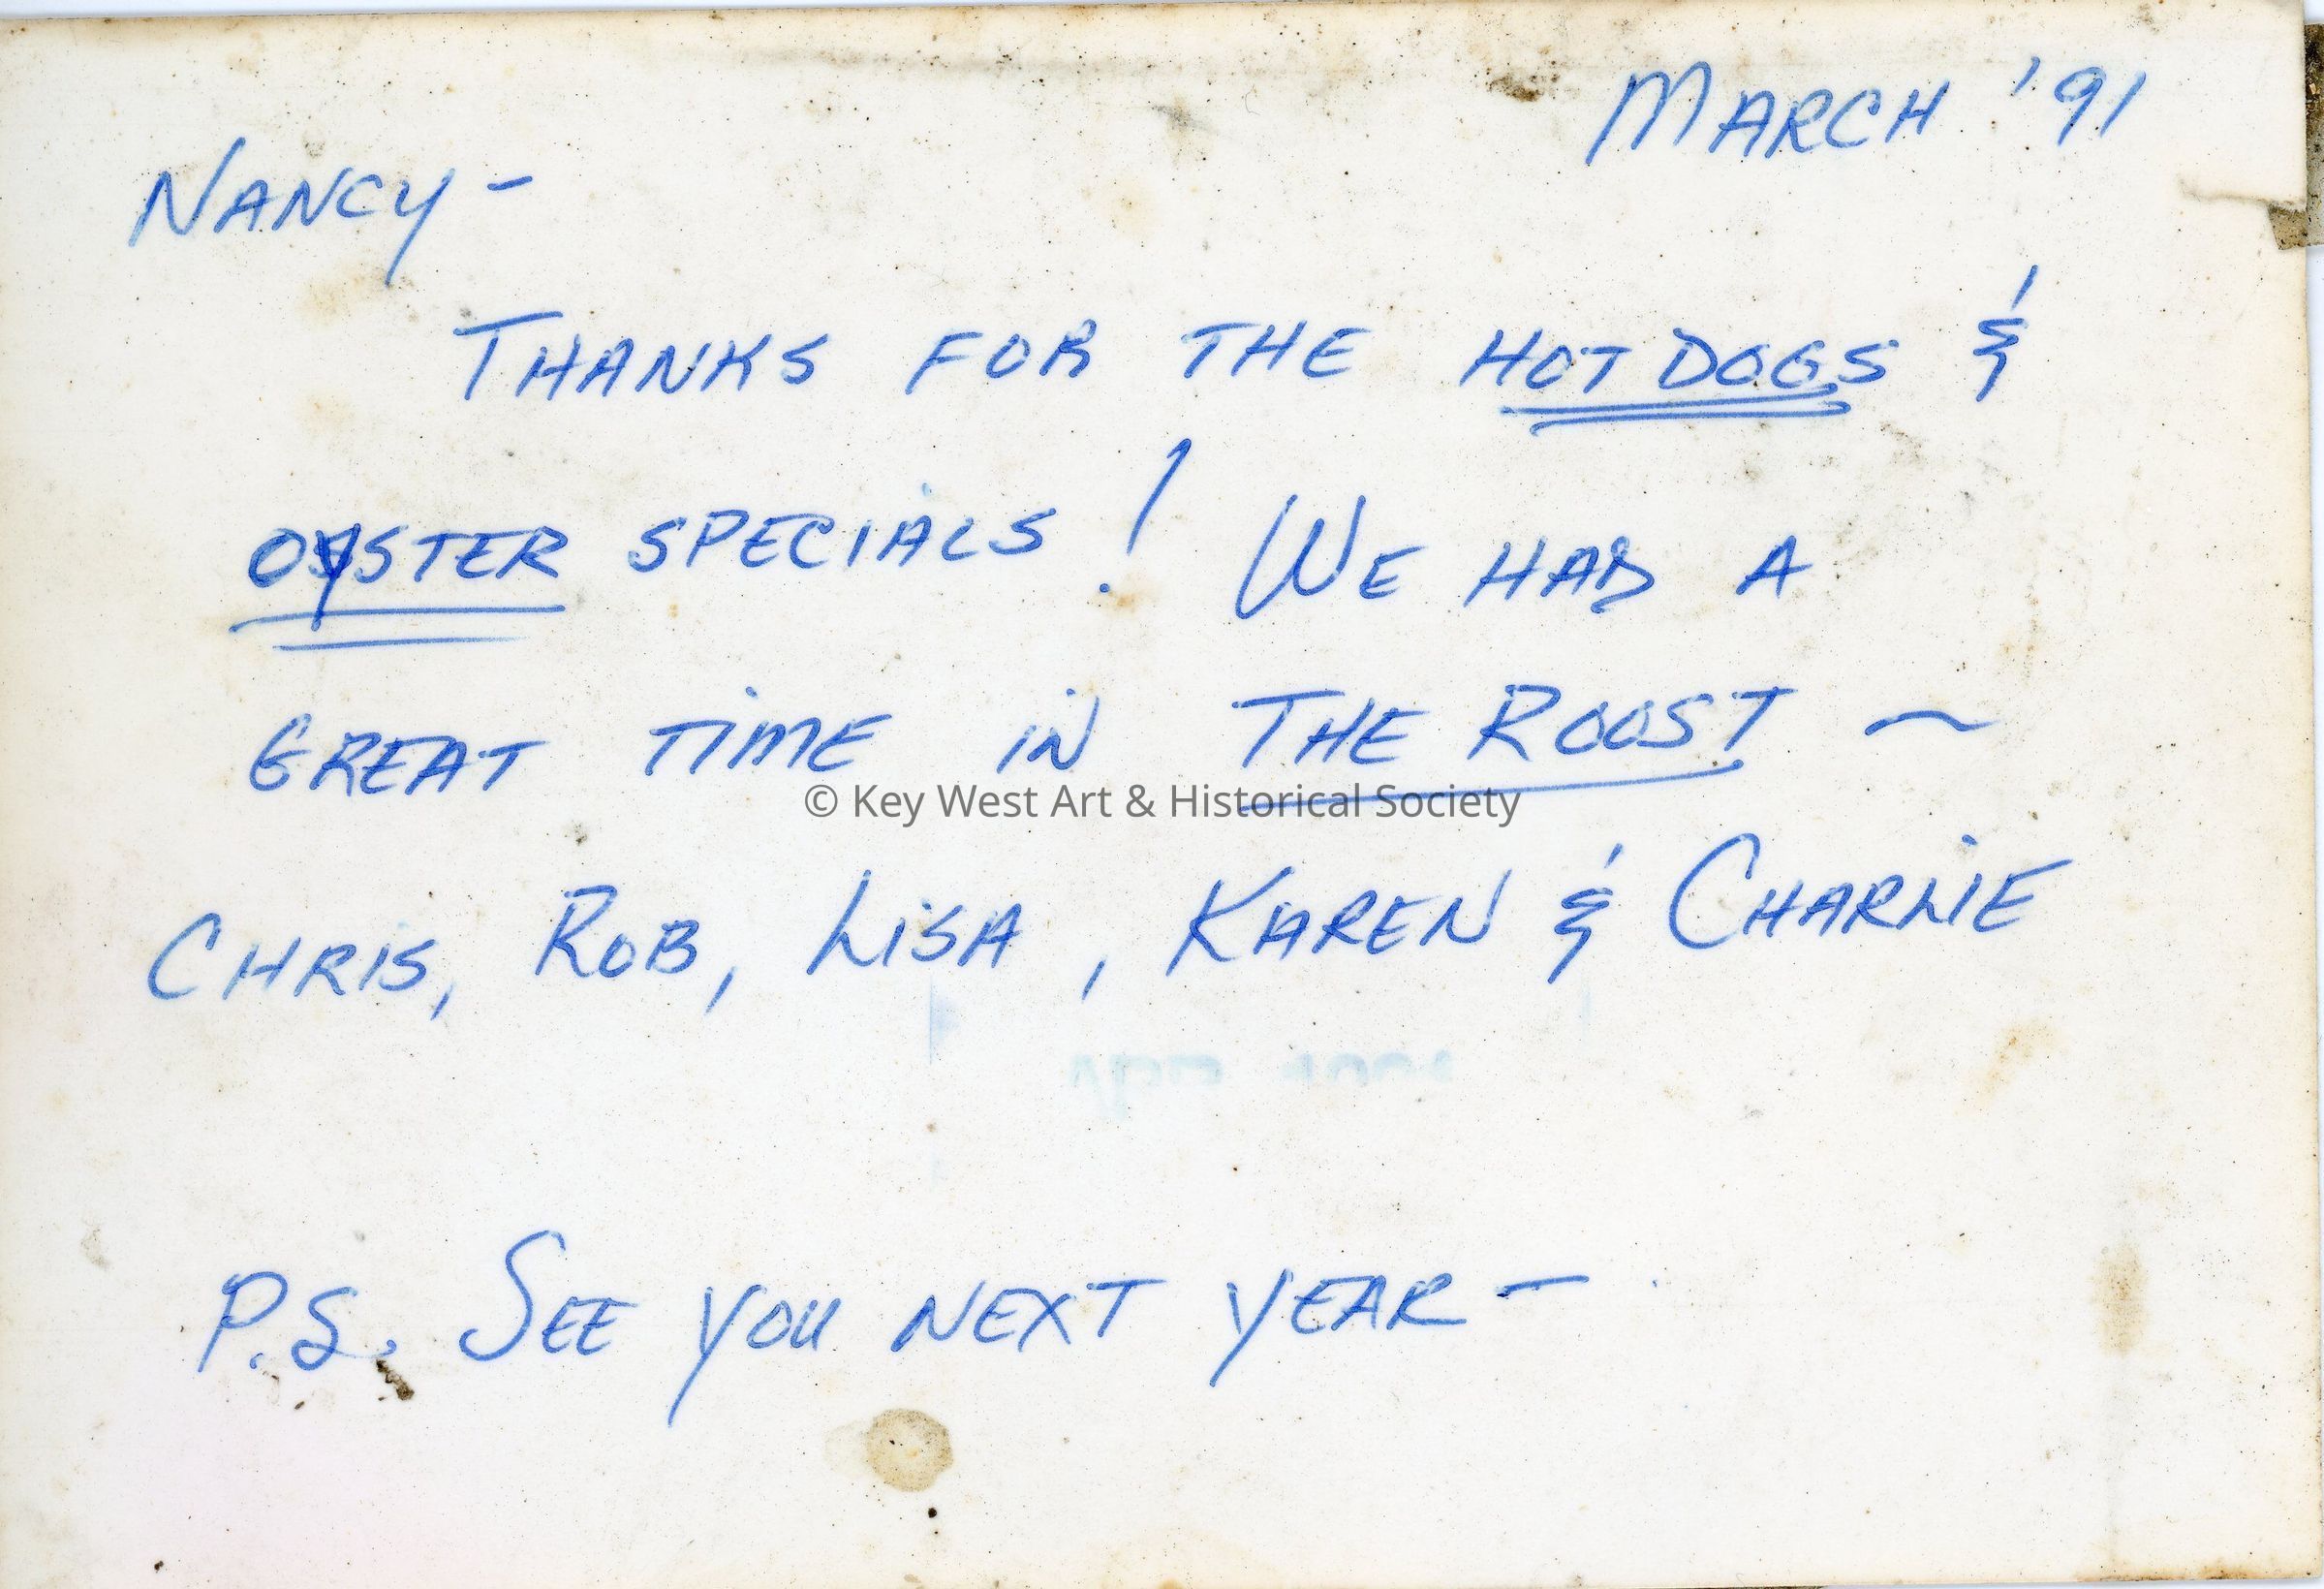 MARCH '91
NANCY -
THANKS FOR THE HOT DOGS &
OYSTER SPECIALS! WE HAD A
GREAT TIME IN THE ROOST ~
© Key West Art & Historical Society
CHRIS, ROB, LISA, KAREN & CHARLIE
P.S. SEE YOU NEXT YEAR -